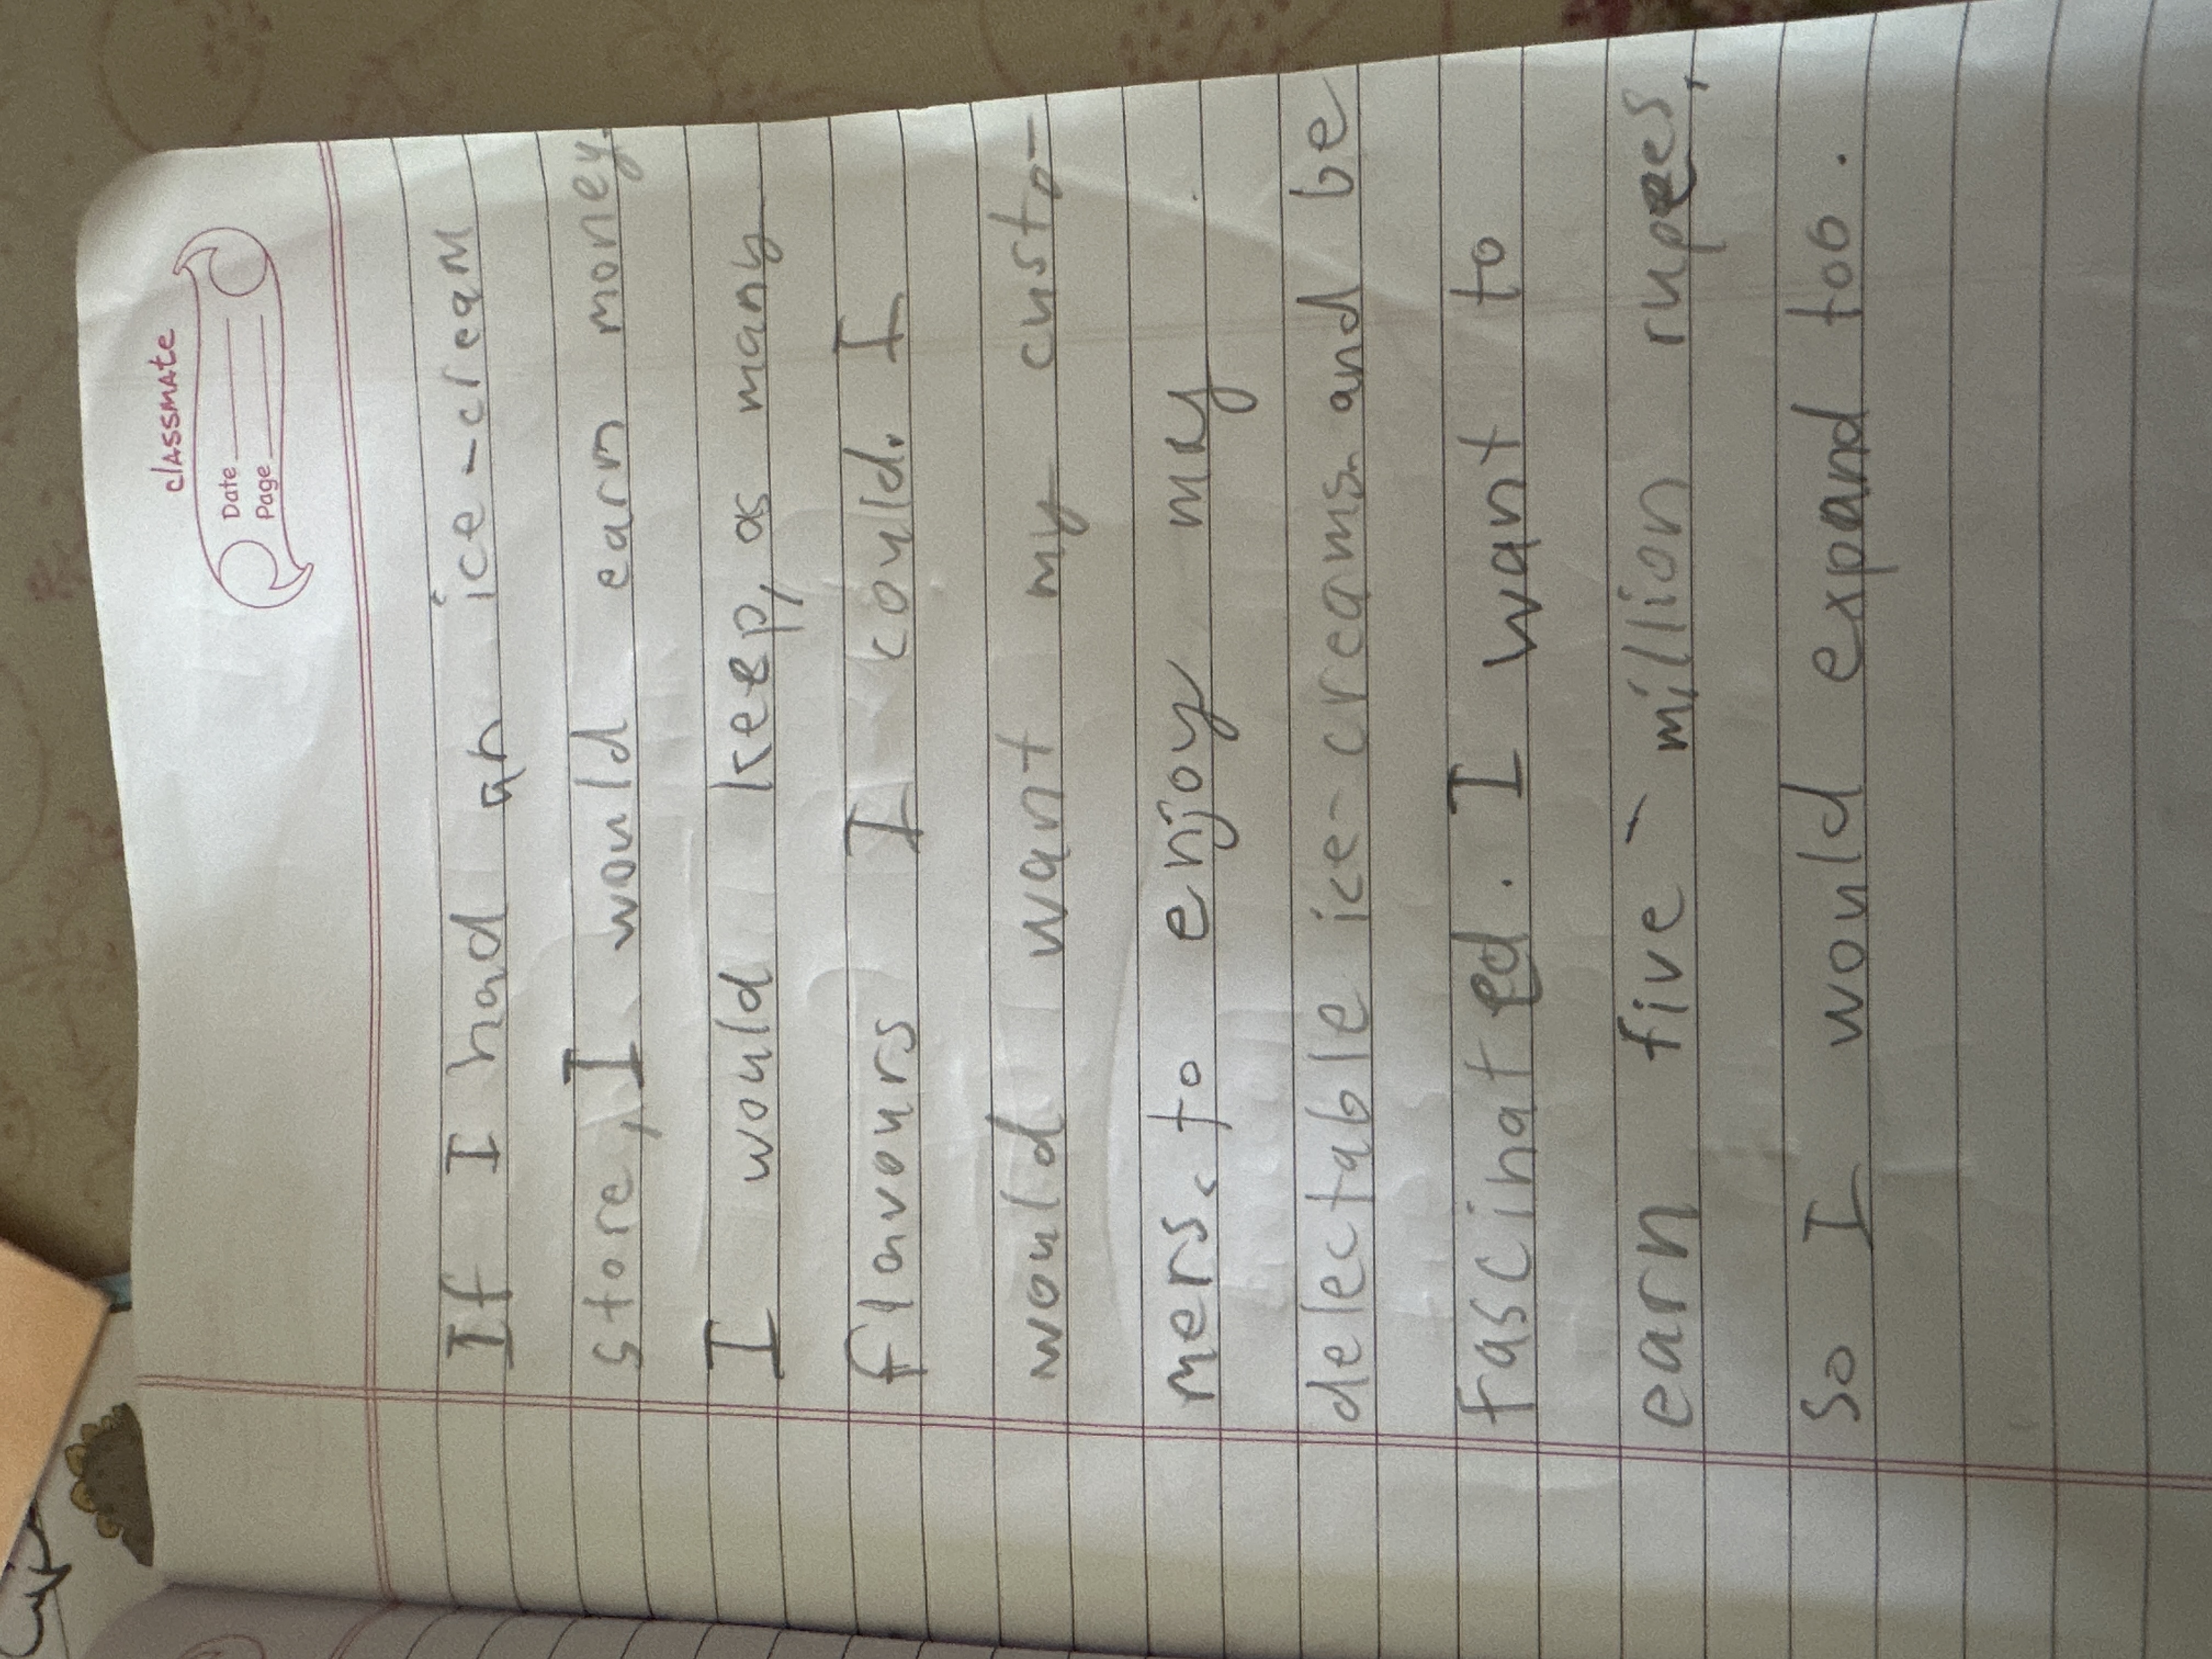 classmate
Date
Page
If I had an ice-cream
store, I would earn money.
I would keep, as many
flavours I could. I
would want my custo-
mers to enjoy my
delectable ice-creams and be
fascinated. I want to
earn five-million rupees,
so I would expand too.